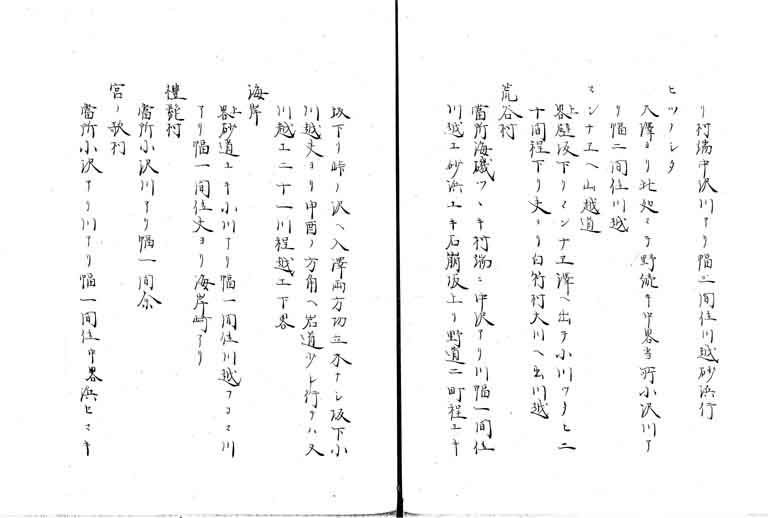 リ村端中沢川アリ幅二間位川越砂浜行
ヒツノシタ
入澤ヨリ此処マテ野続キ中畧当所小沢川ア
リ幅二間位川越
マンナエヘ山越道
上畧庭坂下リマンナエ澤ヘ出テ小川ツタヒ二
十間程下リ夫ヨリ白符村大川ヘ出川越
荒谷村
當所海磯ツヽキ村端ニ中沢アリ川幅一間位
川越エ砂浜ユキ石崩坂上リ野道二町程ユキ
坂下リ峠ノ沢ヘ入澤両方切立水ナシ坂下小
川越夫ヨリ申酉ノ方角ヘ岩道少シ行テハ又
川越エ二十一川程越エ下畧
海岸
上畧砂道ユキ小川アリ幅一間位川越フコマ川
アリ幅一間位夫ヨリ海岸崎アリ
禮髭村
當所小沢川アリ幅一間余
宮ノ歌村
當所小沢アリ川アリ幅一間位中畧浜ヒマキ